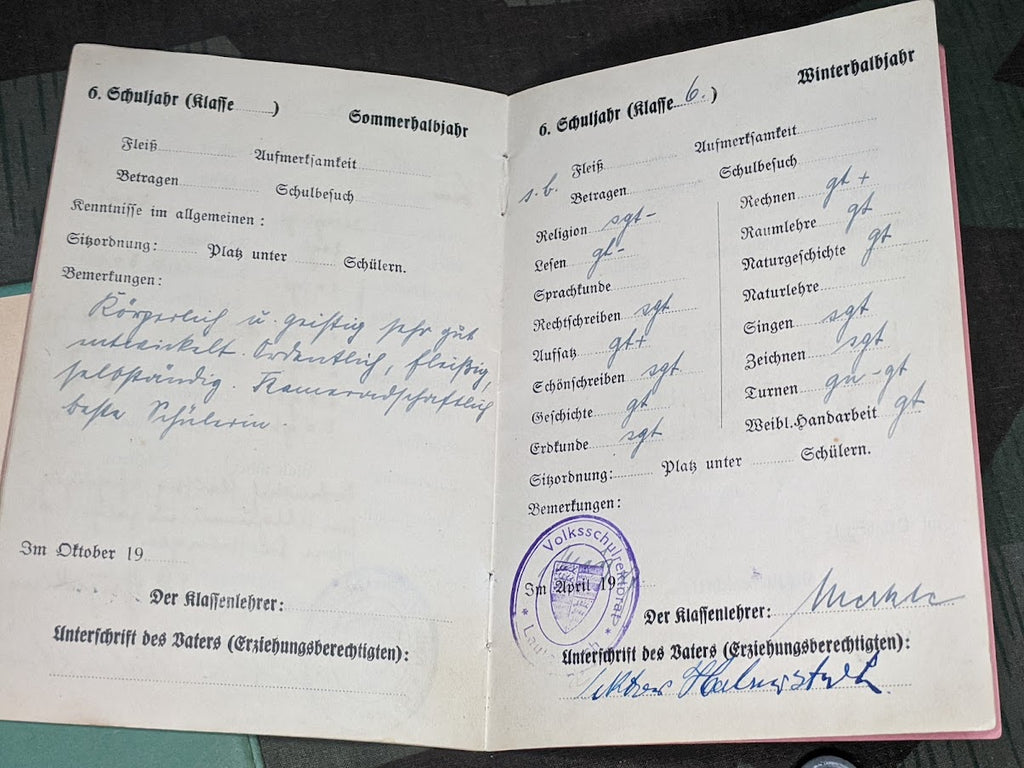 6. Schuljahr (Klasse ........)
Sommerhalbjahr
Fleiß ........ Aufmerksamkeit ........
Betragen ........ Schulbesuch ........
Kenntnisse im allgemeinen:
Sitzordnung: ........ Platz unter ........ Schülern.
Bemerkungen:
Körperlich u. geistig sehr gut
entwickelt. Ordentlich, fleißig,
selbständig. Kameradschaftlich
beste Schülerin.
Im Oktober 19........
Der Klassenlehrer:
Unterschrift des Vaters (Erziehungsberechtigten):
6. Schuljahr (Klasse 6.)
Winterhalbjahr
Fleiß ........ Aufmerksamkeit ........
s. b. Betragen ........ Schulbesuch ........
Religion sgt -
Lesen gt -
Sprachkunde ........
Rechtschreiben sgt
Aufsatz gt +
Schönschreiben sgt
Geschichte gt
Erdkunde sgt
Rechnen gt +
Raumlehre gt
Naturgeschichte gt
Naturlehre ........
Singen sgt
Zeichnen sgt
Turnen gu - gt
Weibl. Handarbeit gt
Sitzordnung: ........ Platz unter ........ Schülern.
Bemerkungen:
Volksschulrektorat
Im April 19
Der Klassenlehrer:
Unterschrift des Vaters (Erziehungsberechtigten):